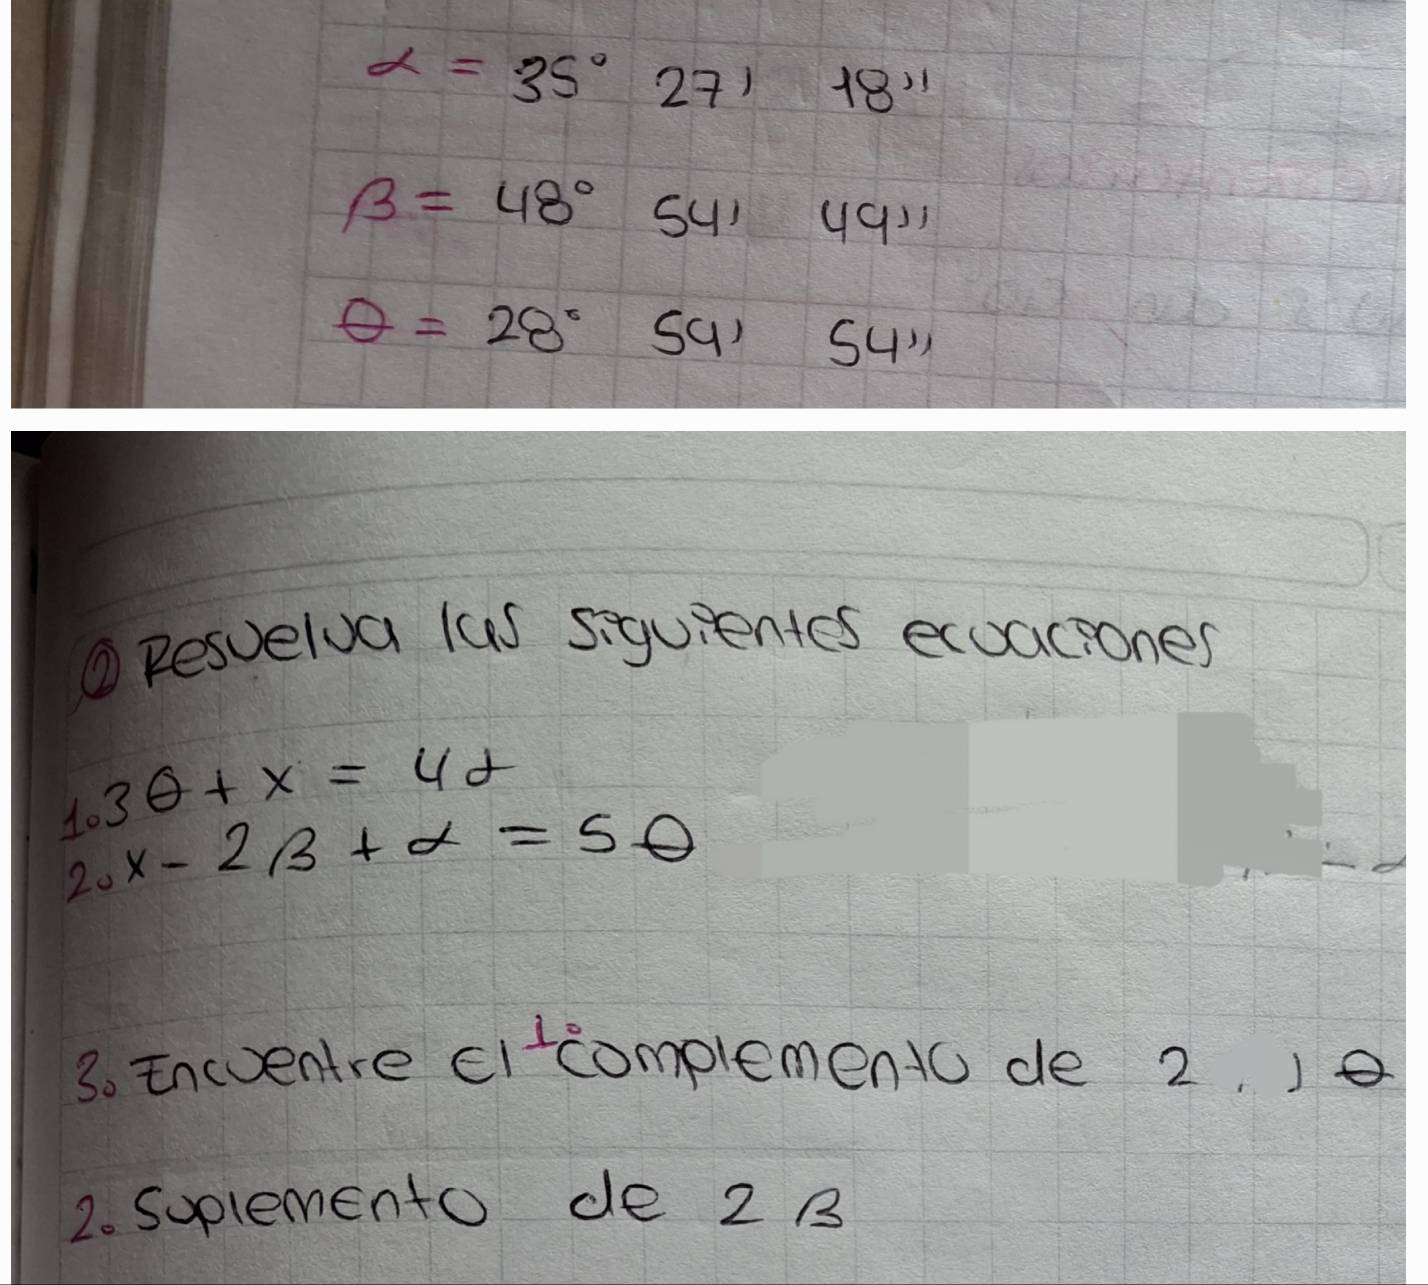 α = 35° 27' 18''
β = 48° 54' 49''
θ = 28° 59' 54''
② Resuelva las siguientes ecuaciones
1. 3θ + x = 4α
2. x - 2β + α = 5θ
3. Encuentre el 1° complemento de 2 , ) θ
2. Suplemento de 2β